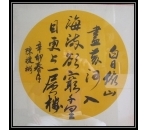 白日依山
盡黄河入
海流欲窮千里
目更上一層樓
辛卯春月